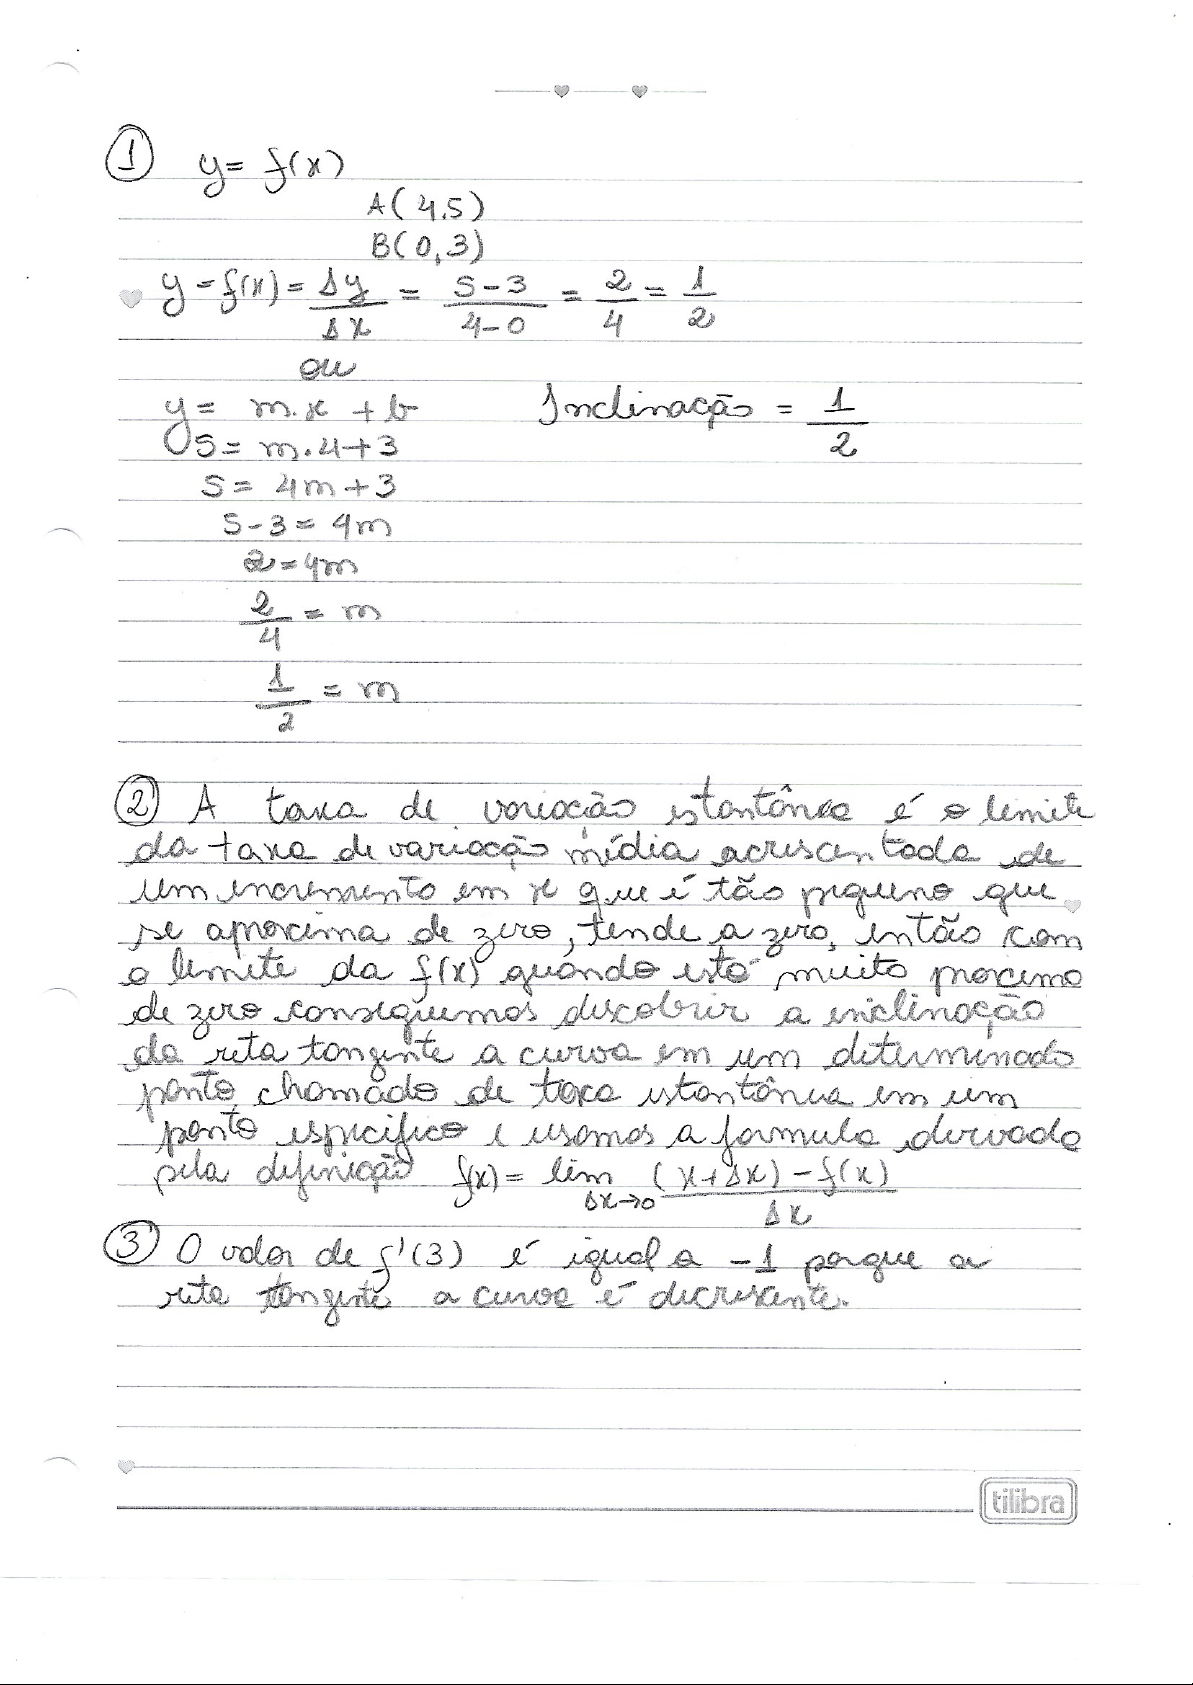 1 y = f(x)
A(4,5)
B(0,3)
y = f(x) = Δy/Δx = 5-3/4-0 = 2/4 = 1/2
ou
y = m.x + b Inclinação = 1/2
5 = m.4+3
5 = 4m+3
5-3 = 4m
2 = 4m
2/4 = m
1/2 = m
2 A taxa de variação istantânea é o limite
da taxa de variação média acrescentada de
um incremento em x que é tão pequeno que
se aproxima de zero, tende a zero, então com
o limite da f(x) quando está muito proximo
de zero conseguimos descobrir a inclinação
da reta tangente a curva em um determinado
ponto, chamado de taxa istantânea em um
ponto especifico e usamos a formula derivada
pela definição f(x) = lim Δx→0 (x+Δx) - f(x)/Δx
3 O valor de f'(3) é igual a -1 porque a
reta tangente a curva é decrescente.
tilibra